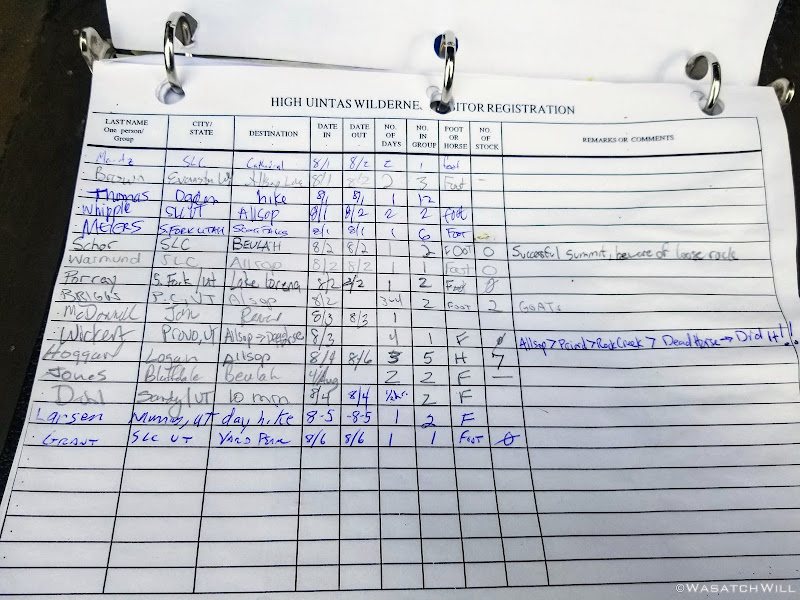 HIGH UINTAS WILDERNE ITOR REGISTRATION
LAST NAME One person/ Group CITY/ STATE DESTINATION DATE IN DATE OUT NO. OF DAYS NO. IN GROUP FOOT OR HORSE NO. OF STOCK REMARKS OR COMMENTS
SLC 8/1 8/2 2 1 foot
Brown 8/1 8/2 2 3 Foot -
Thomas Ogden hike 8/1 8/1 1 12
Whipple SLC UT Allsop 8/1 8/2 2 2 foot
MEYERS S.FORK UTAH 8/1 8/1 1 6 FOOT
Schor SLC BEULAH 8/2 8/2 1 2 FOOT 0 Successful Summit, beware of loose rock
Warmund SLC Allsop 8/2 8/2 1 1 Foot 0
S. Fork/UT Lake 8/2 8/2 1 2 Foot 0
BRIGGS P.C., UT Alsop 8/2 3-4 2 FOOT 2 GOATS
McDowell 8/3 8/3 1
Wickert PROVO, UT Allsop > Deadhorse 8/3 4 1 F 0 Allsop > > Rock Creek > Dead Horse → Did it!!
Hoggan Logan Allsop 8/4 8/6 3 5 H 7
Jones Bluffdale Beulah 4/Aug 2 2 F —
Sandy/UT 10 min 8/4 8/4 2 F
Larsen Murray, UT day hike 8-5 -8-5 1 2 F
GRANT SLC UT 8/6 8/6 1 1 FOOT 0
©WASATCHWILL